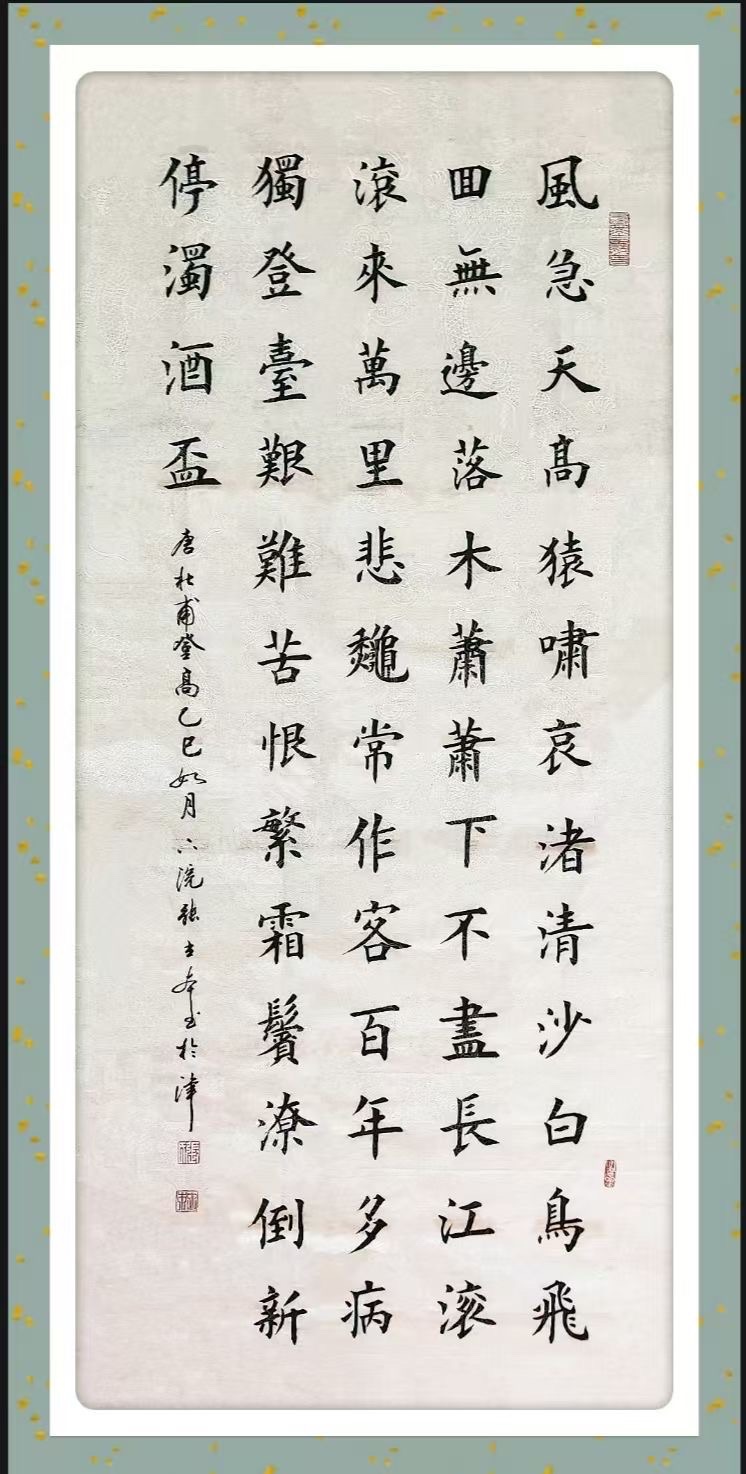 風急天高猿嘯哀渚清沙白鳥飛
回無邊落木蕭蕭下不盡長江滾
滾來萬里悲龝常作客百年多病
獨登臺艱難苦恨繁霜鬢潦倒新
停濁酒盃
唐杜甫登高乙巳如月六浣張士书於津